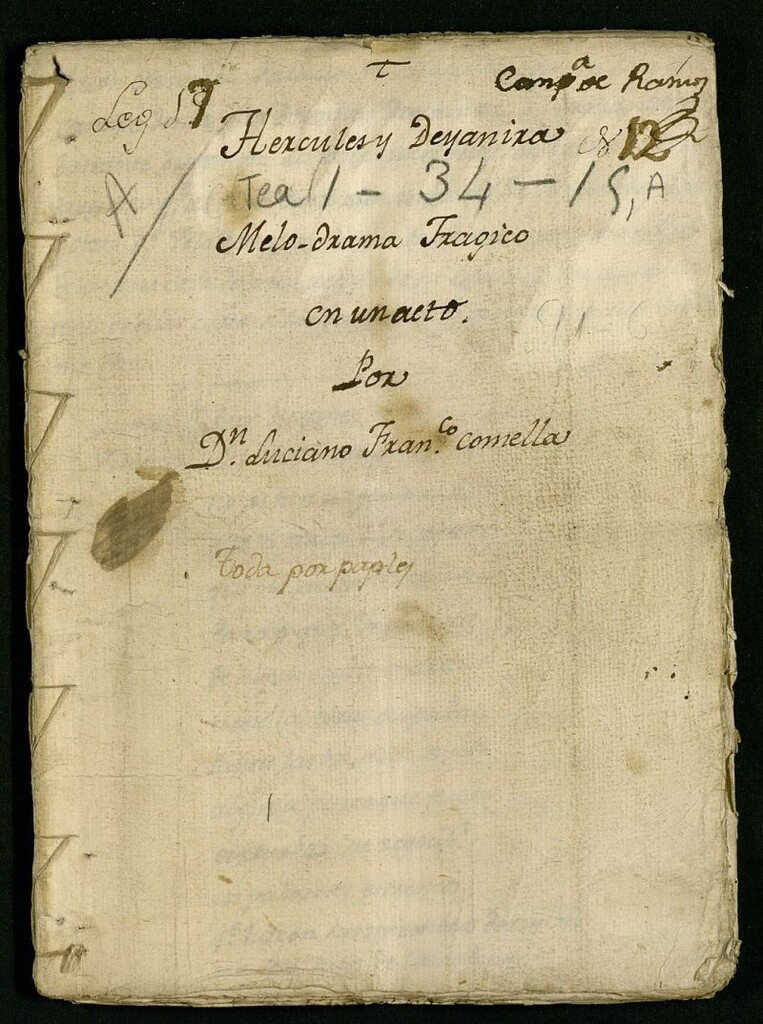 Camp.a de Ramos
Leg 17
Hercules y Deyanira N 12
Tea 1 - 34 - 15, A
Melo-drama Tragico
en un acto.
Por
Dn. Luciano Fran.co Comella
91-6
Toda por papeles